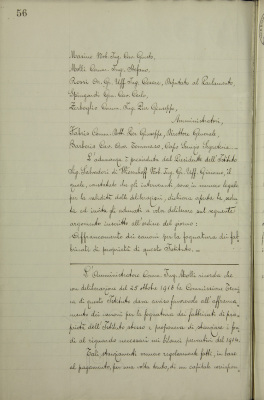 56
Messina Nob. Ing. Cav. Guido,
Molli Comm. Ing. Stefano,
Rossi Dr. Gr. Uff. Ing. Cesare, Deputato al Parlamento,
Cav. Carlo,
Zubeglio Comm. Ing. Giuseppe,
Amministratori,
Comm. Dott. Giuseppe, Direttore Generale,
Barberis Cav. Tommaso, Capo Servizio Segreteria.
L'adunanza è presieduta dal Presidente dell'Istituto
Ing. Salvadori di Nob. Ing. Gr. Uff. Gimmo, il
quale, constatato che gli intervenuti sono in numero legale
per la validità delle deliberazioni, dichiara aperta la seduta
ed invita gli adunati a voler deliberare sul seguente
argomento inscritto all'ordine del giorno:
Affrancamento dei canoni per la fognatura dei fab-
bricati di proprietà di questo Istituto.
L'Amministratore Comm. Ing. Molli ricorda che
con deliberazione del 25 Ottobre 1913 la Commissione
di questo Istituto dava avviso favorevole all'affranca-
mento dei canoni per la fognatura dei fabbricati di pro-
prietà dell'Istituto stesso e proponeva di stanziare i fon-
di al riguardo necessari nei bilanci preventivi del 1914.
Tali stanziamenti vennero regolarmente fatti, in base
al pagamento, per una volta tanto, di un capitale